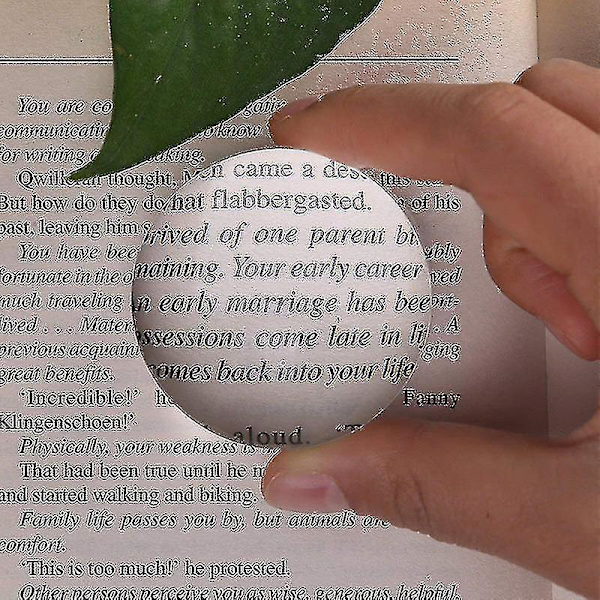 You are co
communicatin to know
for writing making.
Qwilleran thought, Men came a des this
But how do they do hat flabbergasted. of his
past, leaving him
You have bee rived of one parent bu ably
fortunate in the maining. Your early career ved
much traveling n early marriage has been
lived . . . Mater ssessions come late in li . A
previous acquain omes back into your life ging
great benefits.
'Incredible!' he Fanny
Klingenschoen!' aloud.
Physically, your weakness is
That had been true until he m
and started walking and biking.
Family life passes you by, but animals are
comfort.
'This is too much!' he protested.
Other persons perceive you as wise, generous, helpful,